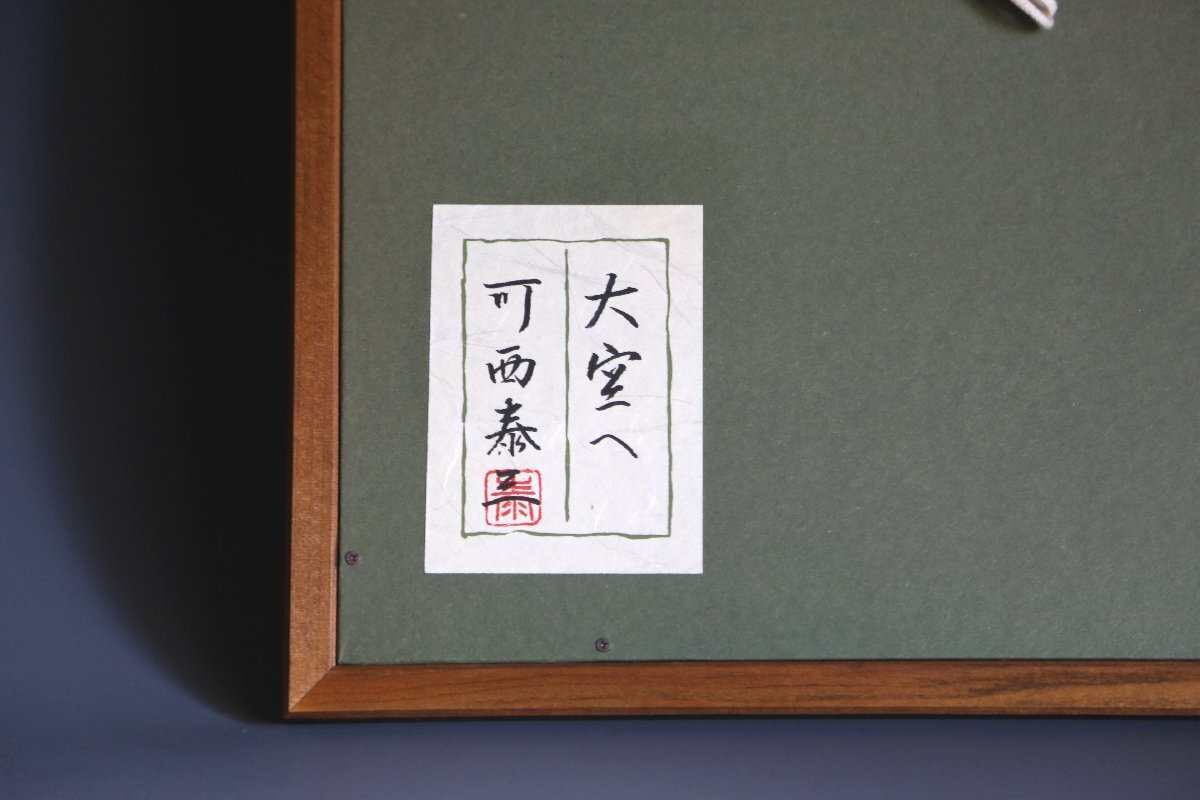 大空へ
可西泰三
泰